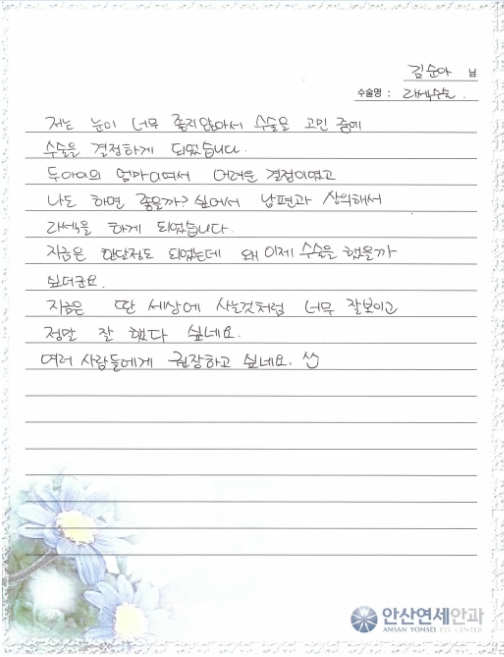 김순아 님
수술명 : 라섹수술.
저는 눈이 너무 좋지않아서 수술을 고민 중에
수술을 결정하게 되었습니다.
두아이의 엄마이여서 어려운 결정이였고
나도 하면 좋을까? 싶어서 남편과 상의해서
라섹을 하게 되었습니다.
지금은 한달정도 되었는데 왜 이제 수술을 했을까
싶더군요.
지금은 딴 세상에 사는것처럼 너무 잘보이고
정말 잘 했다 싶네요.
여러 사람들에게 권장하고 싶네요. ^^
안산연세안과
ANSAN YONSEI EYE CENTER